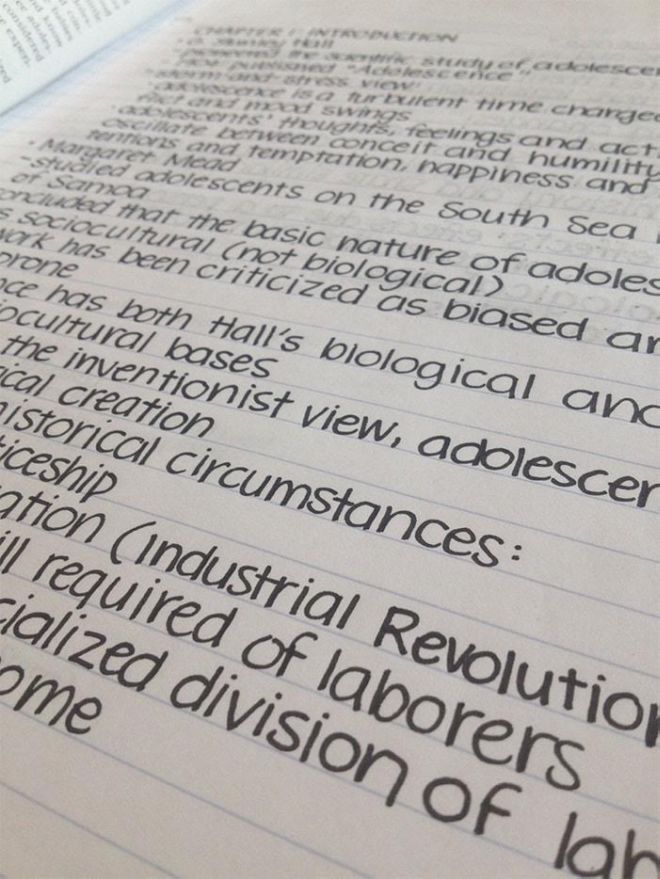 CHAPTER 1: INTRODUCTION
- G. Stanley Hall
pioneered the scientific study of adolescen
published "Adolescence"
- storm-and-stress view:
adolescence is a turbulent time charged
flict and mood swings
- adolescents' thoughts, feelings and act
oscillate between conceit and humility
tentions and temptation, happiness and
• Margaret Mead
- studied adolescents on the South Sea I
of Samoa
oncluded that the basic nature of adoles
s sociocultural (not biological)
work has been criticized as biased an
prone
nce has both Hall's biological and
iocultural bases
the inventionist view, adolescen
ical creation
historical circumstances:
ticeship
ation (Industrial Revolution
ill required of laborers
cialized division of lab
ome